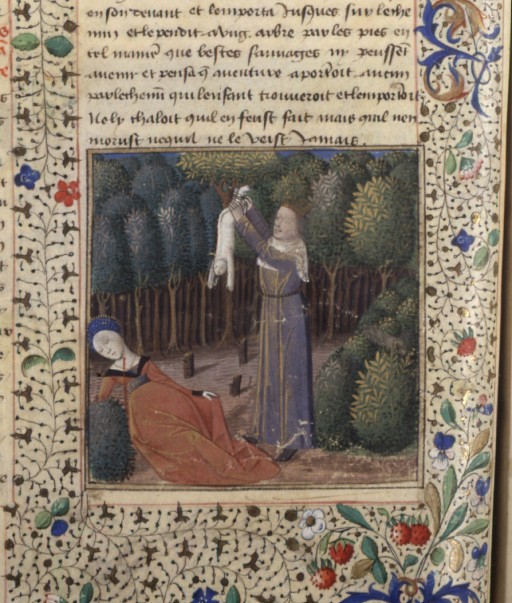 en son tenant et lemporta Jusques sur le che
min et le pendit a ung arbre par les pies en
tel manie que bestes sauvages ny peussēt
avenir et pensa q̄ aventure aporteroit aucun
par le chemī qui lenfant trouueroit et lemporteroit
Ne ly chaloit quil en feust fait mais quil nen
morust ne quil ne le veist Jamais.